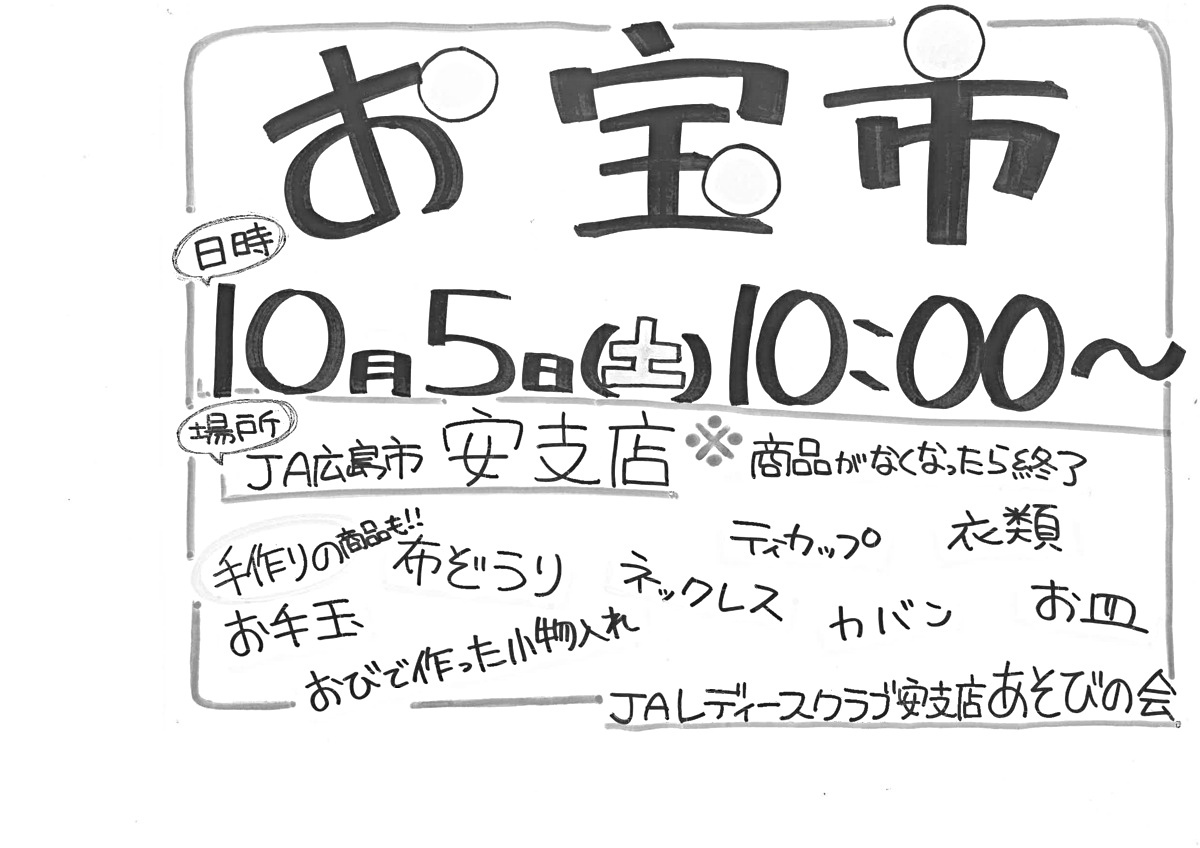 お宝市
日時
10月5日(土)10:00～
場所
JA広島市 安支店 ※商品がなくなったら終了
手作りの商品も!!
布ぞうり
ネックレス
ティカップ
衣類
お手玉
おびで作った小物入れ
カバン
お皿
JAレディースクラブ安支店あそびの会